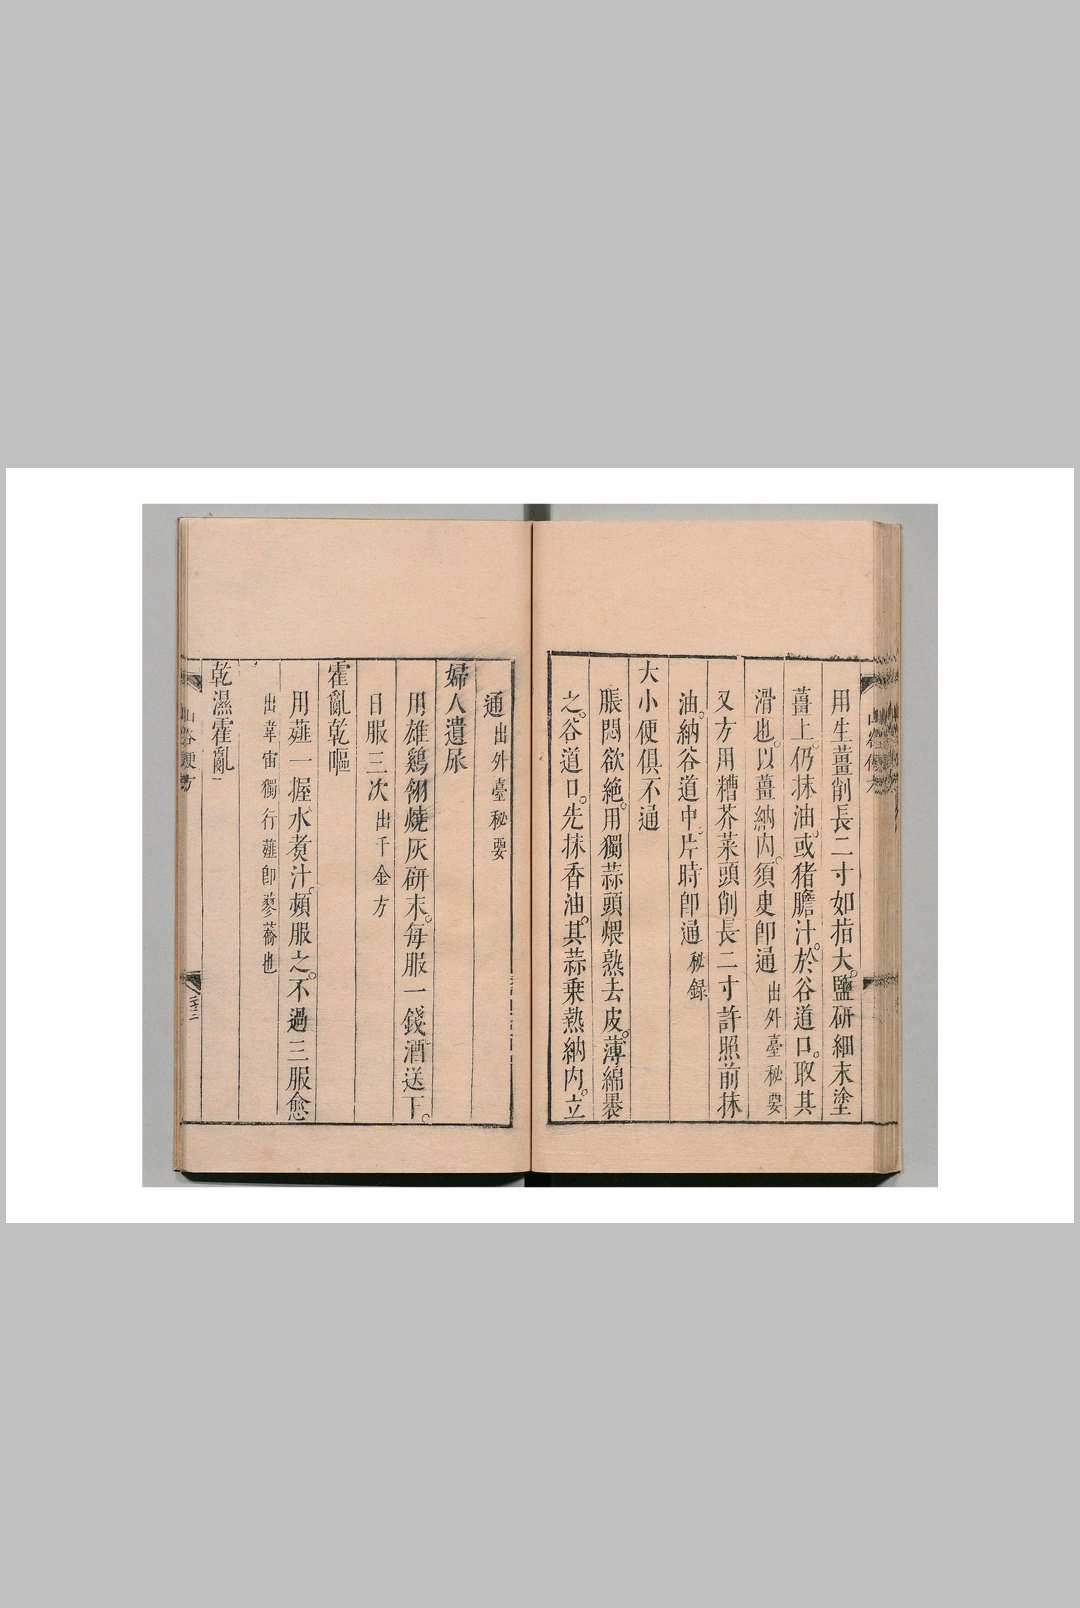 用生薑削長二寸如指大。鹽研細末塗
薑上。仍抹油。或猪膽汁。於谷道口。取其
滑也。以薑納內。須臾卽通出外臺秘要
又方用糟芥菜頭削長二寸許照前抹
油。納谷道中。片時卽通秘録
大小便俱不通
脹悶欲絶。用獨蒜頭煨熟去皮。薄綿裹
之。谷道口。先抹香油。其蒜乗熱納內。立
通出外臺秘要
婦人遺尿
用雄鷄翎燒灰研末。每服一錢酒送下。
日服三次出千金方
霍亂乾嘔
用薤一握水煑汁。頻服之。不過三服愈
出韋宙獨行薤卽蓼蕎也
乾濕霍亂
山谷便方